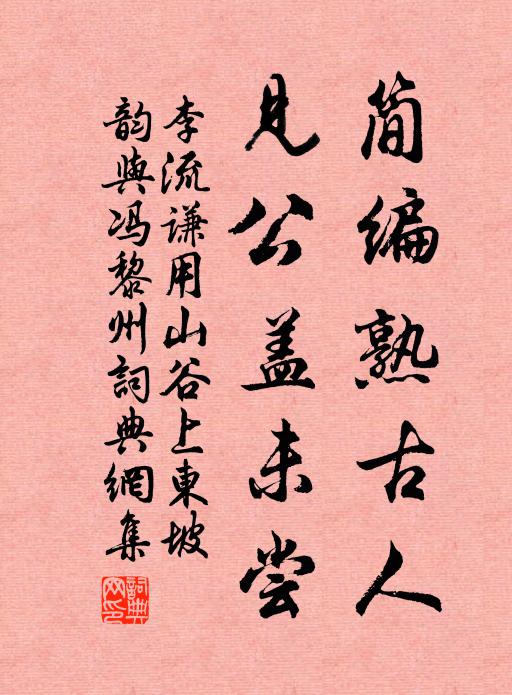 简编熟古人
见公盖未尝
李流谦用山谷上東坡
韵與冯黎州詞典網集
詞典网印